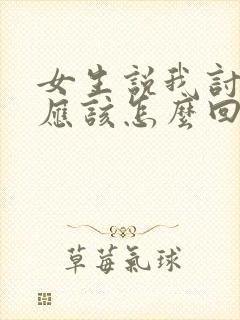 女生說我討
應該怎麼回
草莓氣球